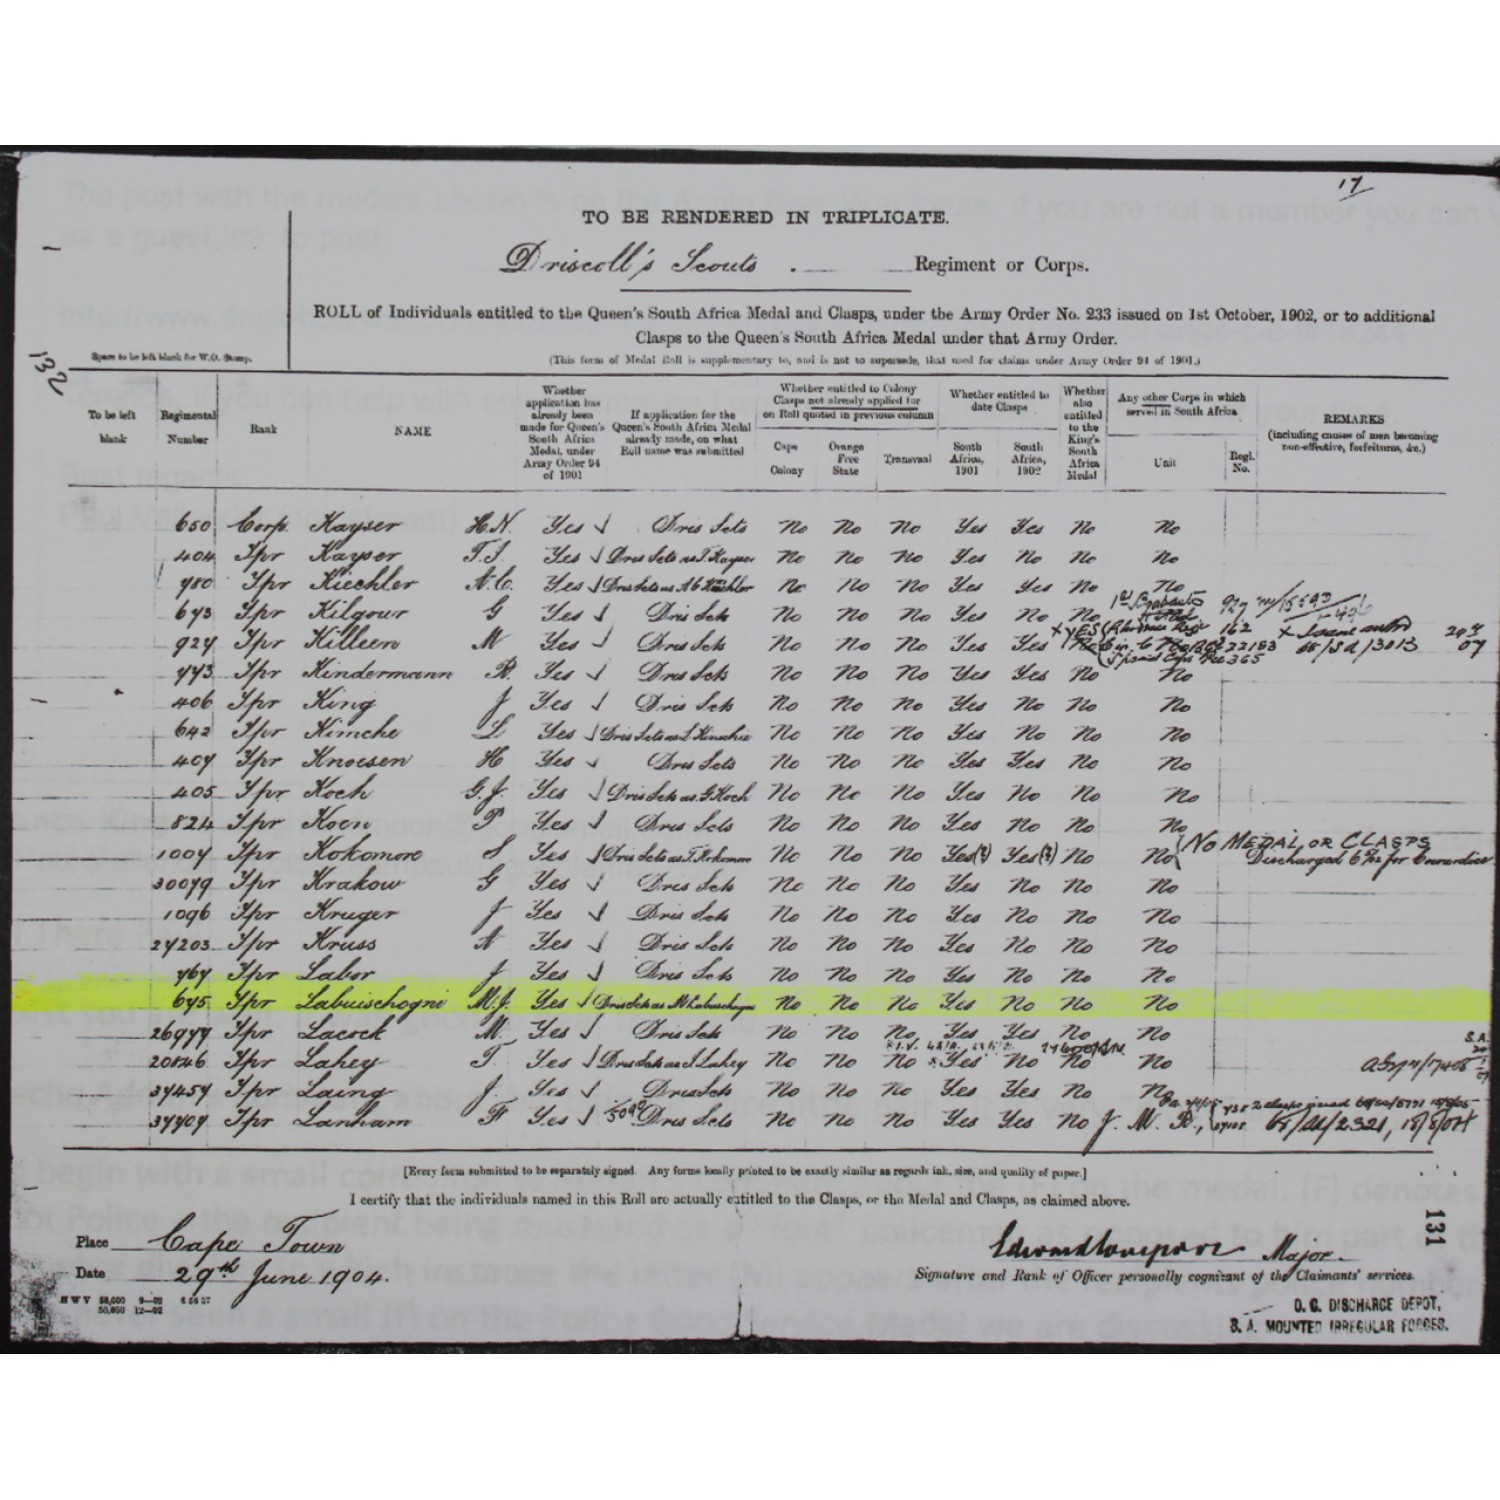 17
TO BE RENDERED IN TRIPLICATE.
Driscoll's Scouts Regiment or Corps.
ROLL of Individuals entitled to the Queen's South Africa Medal and Clasps, under the Army Order No. 233 issued on 1st October, 1902, or to additional
Clasps to the Queen's South Africa Medal under that Army Order.
Space to be left blank for W.O. Stamp.
(This form of Medal Roll is supplementary to, and is not to supersede, that used for claims under Army Order 94 of 1901.)
132
To be left blank
Regimental Number
Rank
NAME
Whether application has already been made for Queen's South Africa Medal, under Army Order 94 of 1901
If application for the Queen's South Africa Medal already made, on what Roll name was submitted
Whether entitled to Colony Clasps not already applied for on Roll quoted in previous column
Cape Colony
Orange Free State
Transvaal
Whether entitled to date Clasps
South Africa, 1901
South Africa, 1902
Whether also entitled to the King's South Africa Medal
Any other Corps in which served in South Africa
Unit
Regl. No.
REMARKS
(including causes of men becoming non-effective, forfeitures, &c.)
650 Corp. Kayser H.N. Yes Dris Scts No No No Yes Yes No No
404 Tpr Kayser T.J. Yes Dris Scts as T. Kayser No No No Yes No No No
780 Tpr Kiechler A.C. Yes Dris Scts as A C No No No Yes Yes No No
673 Tpr Kilgour G Yes Dris Scts No No No Yes No No
927 Tpr Killeen M Yes Dris Scts No No No Yes Yes No
1st Brabants 927
x YES 162 x Issue
22183 68/Sd/13013
365
773 Tpr Kindermann R. Yes Dris Scts No No No Yes Yes No No
406 Tpr King J Yes Dris Scts No No No Yes No No No
642 Tpr Kimche L Yes Dris Scts as L Kimchie No No No Yes No No No
407 Tpr Knoesen H Yes Dris Scts No No No Yes Yes No No
405 Tpr Koch G.J. Yes Dris Scts as G Koch No No No Yes No No No
824 Tpr Koen P Yes Dris Scts No No No Yes No No No
1007 Tpr Kokomore S Yes Dris Scts as T. Kokomore No No No Yes(?) Yes(?) No No NO MEDAL OR CLASPS
Discharged for Cowardice
30079 Tpr Krakow G Yes Dris Scts No No No Yes No No No
1096 Tpr Kruger J Yes Dris Scts No No No Yes No No No
27203 Tpr Kruss A Yes Dris Scts No No No Yes No No No
767 Tpr Labor J Yes Dris Scts No No No Yes No No No
675 Tpr Labuischogni M.J. Yes Dris Scts as M Labuschagne No No No Yes No No No
26977 Tpr Lacock M. Yes Dris Scts No No No Yes Yes No No
20846 Tpr Lahey T. Yes Dris Scts as J Lahey No No No Yes No No No
37457 Tpr Laing J. Yes Dris Scts No No No Yes Yes No No
37707 Tpr Lanham F Yes Dris Scts No No No Yes Yes No J. M. R.,
[Every form submitted to be separately signed. Any forms locally printed to be exactly similar as regards ink, size, and quality of paper.]
I certify that the individuals named in this Roll are actually entitled to the Clasps, or the Medal and Clasps, as claimed above.
131
Place Cape Town
Date 29th June 1904.
Major
Signature and Rank of Officer personally cognizant of the Claimants' services.
H W V 50,000 9-02
50,000 12-02
O. C. DISCHARGE DEPOT,
S. A. MOUNTED IRREGULAR FORCES.